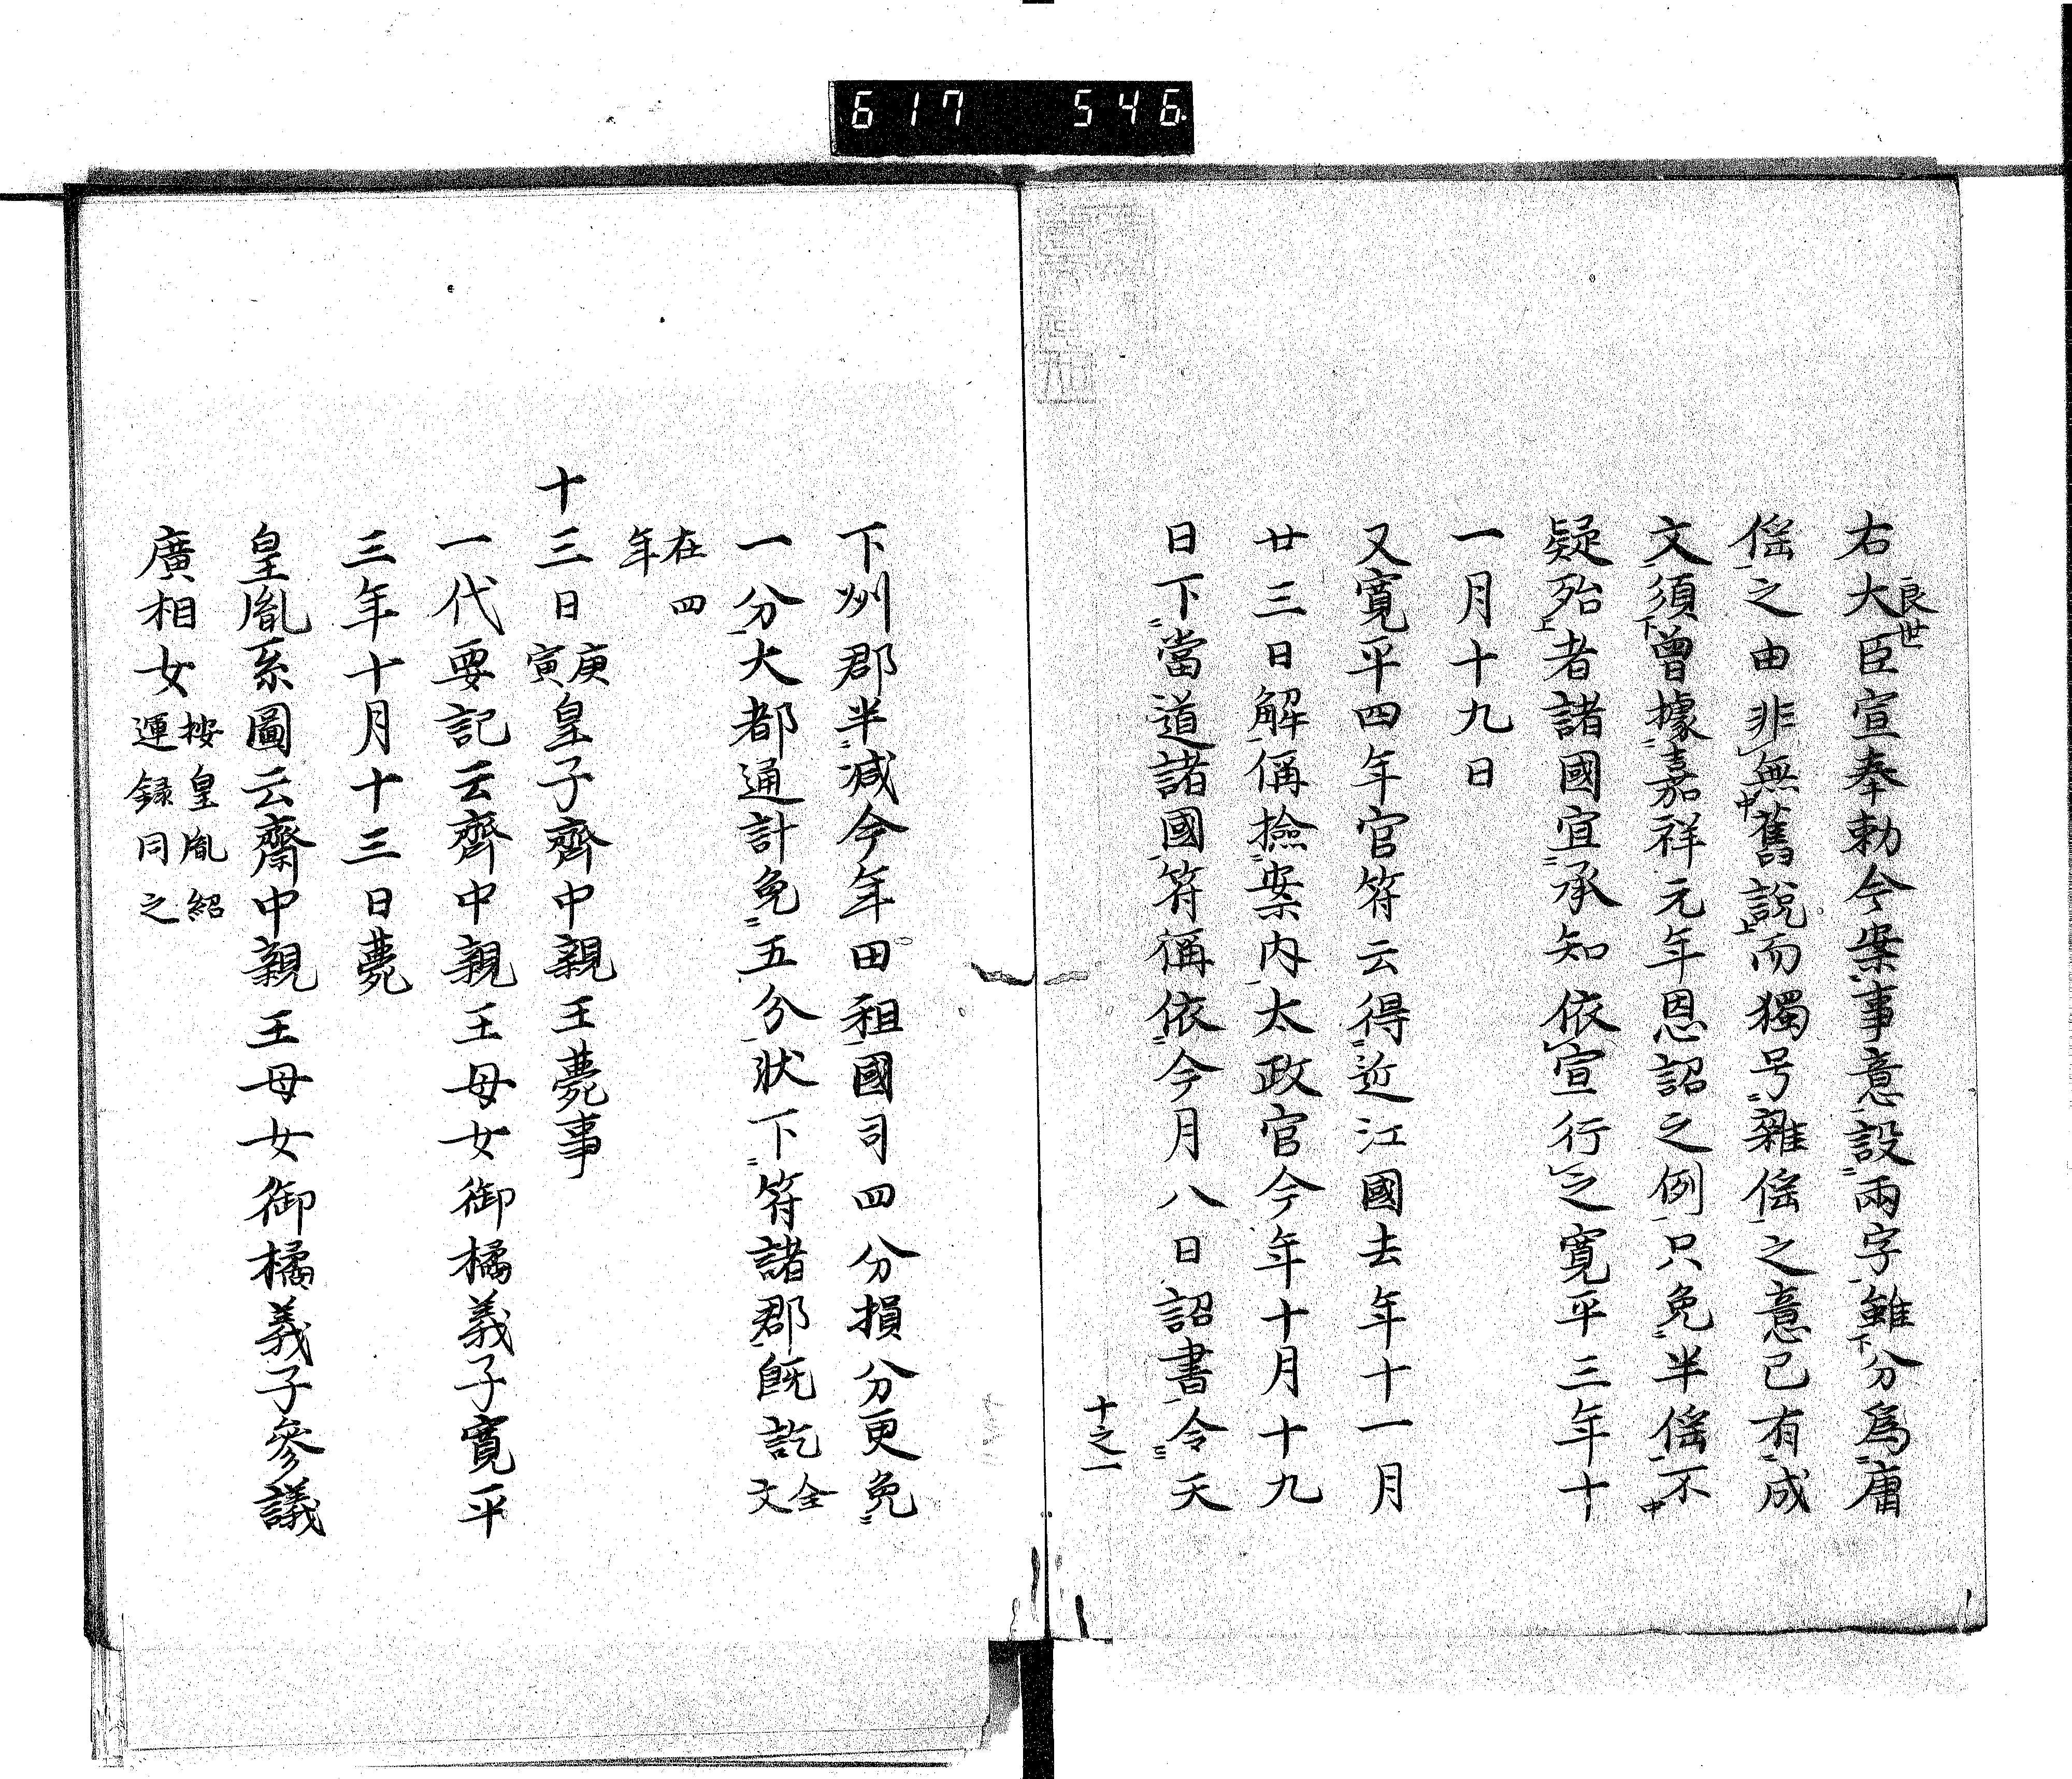 617 546
右大臣宣奉勅今案事意設兩字雖分為庸
良世
徭之由非無舊説而獨号雜徭之意已有成
文須曽據嘉祥元年恩詔之例只免半徭不
疑殆者諸國宜承知依宣行之寛平三年十
一月十九日
又寛平四年官符云得近江國去年十一月
廿三日解偁撿案内太政官今年十月十九
日下當道諸國符稱依今月八日詔書令天
十之一
下州郡半減今年田租國司四分損分更免
一分大都通計免五分状下符諸郡既訖全文
在四年
十三日庚寅皇子齊中親王薨事
一代要記云齊中親王母女御橘義子寛平
三年十月十三日薨
皇胤系圖云齋中親王母女御橘義子參議
廣相女按皇胤紹運録同之